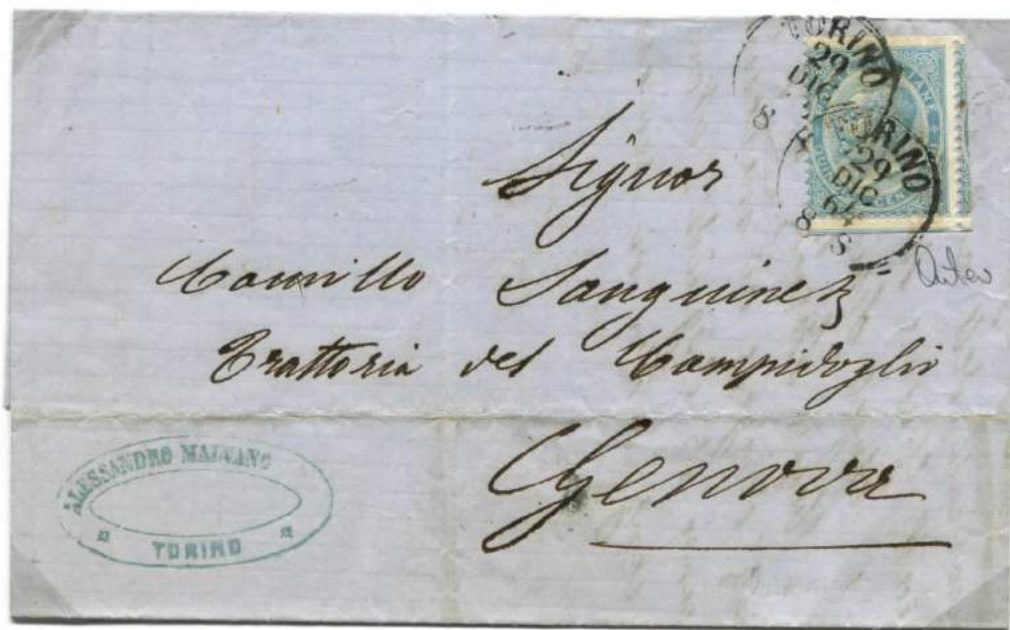 TORINO
29
DIC
8
TORINO
29
DIC
64
8 S
Signor
Camillo Sanguinetj
Trattoria del Campidoglio
Genova
ALESSANDRO MALVANO
TORINO